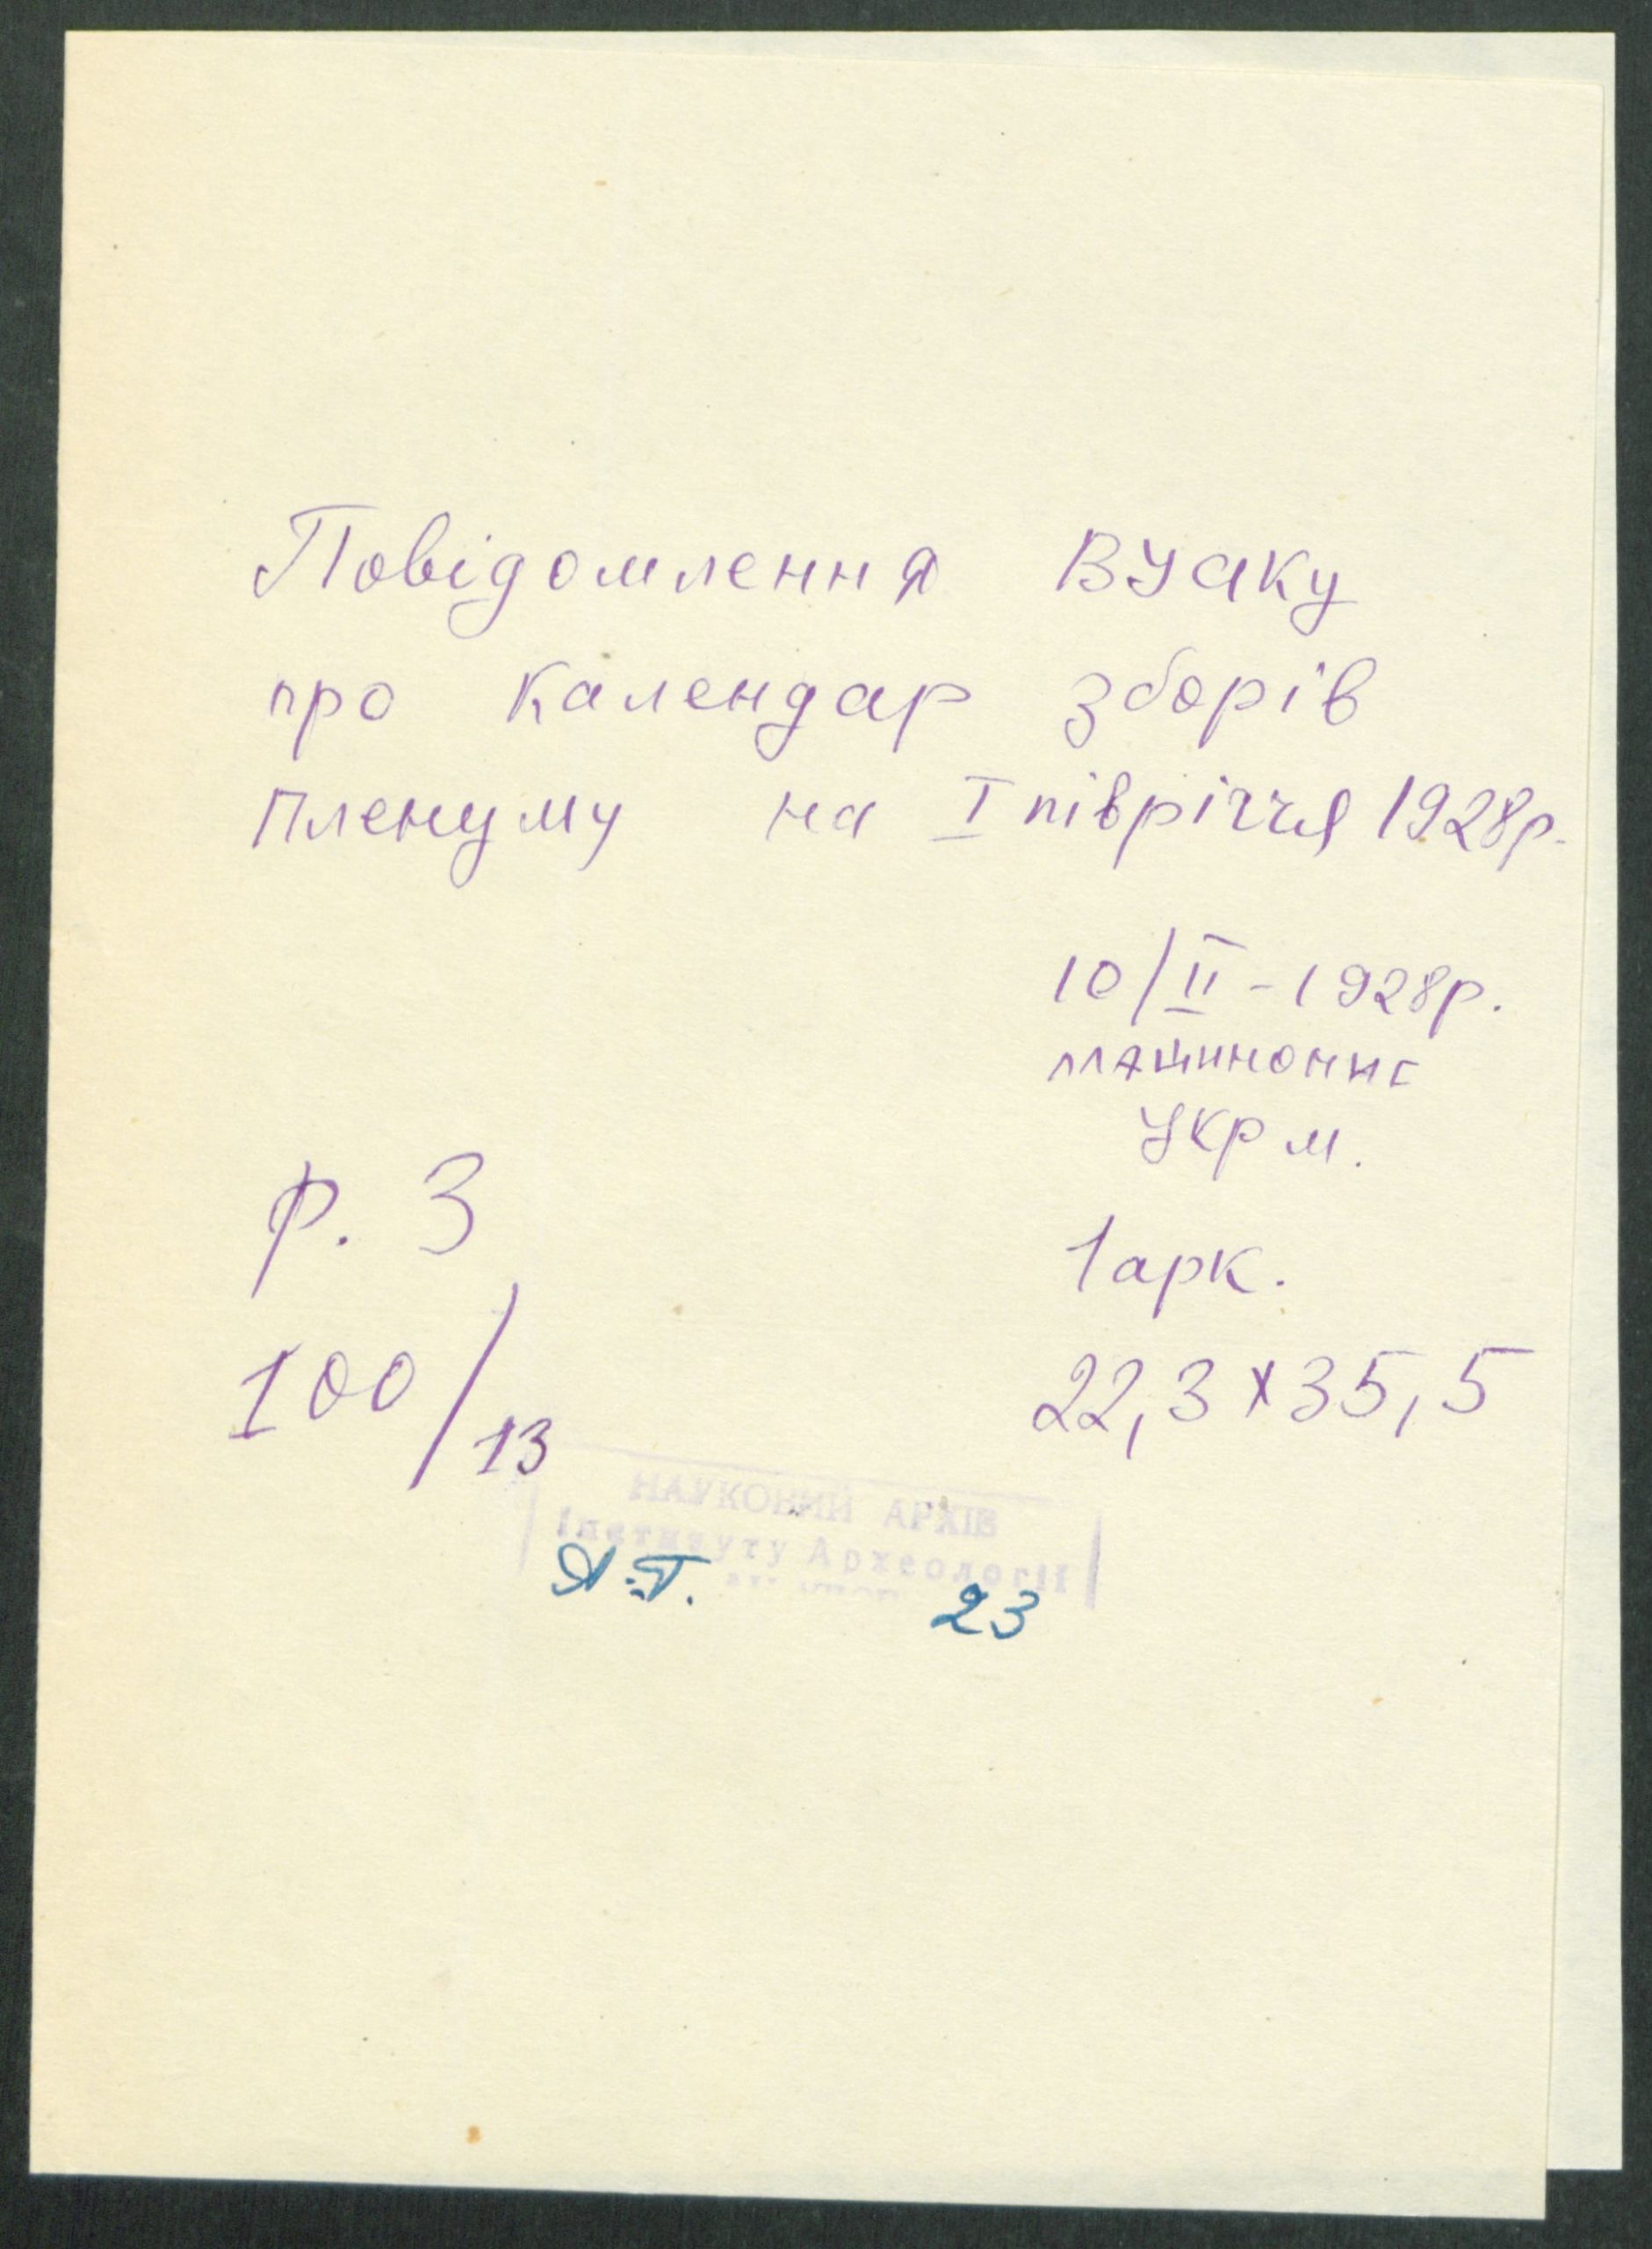 Повідомлення ВУаку
про календар зборів
пленуму на I півріччя 1928р.
10/II-1928р.
машинопис
укр м.
1арк.
р. 3
100/13
22,3×35,5
НАУКОВИЙ АРХІВ
Інституту Археології
23